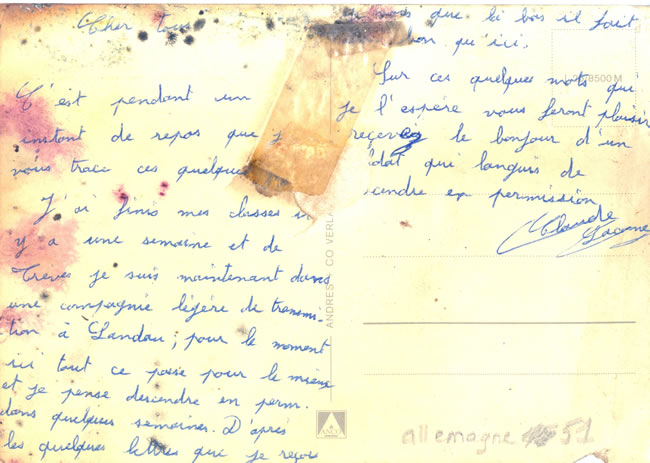 Cher tous
C'est pendant un
instant de repos que j
vous trace ces quelques
J'ai finis mes classes il
y a une semaine et de
Treves je suis maintenant dans
une compagnie légère de transmi-
tion à Landau; pour le moment
ici tout ce passe pour le mieux
et je pense descendre en perm.
dans quelques semaines. D'après
les quelques lettres que je reçois
vois que là bas il fait
bon qu'ici.
Sur ces quelques mots qui
je l'espère vous feront plaisir
recevez le bonjour d'un
ldat qui languis de
scendre en permission
Claude
8500 M
ANDRES CO VERLA
allemagne 51